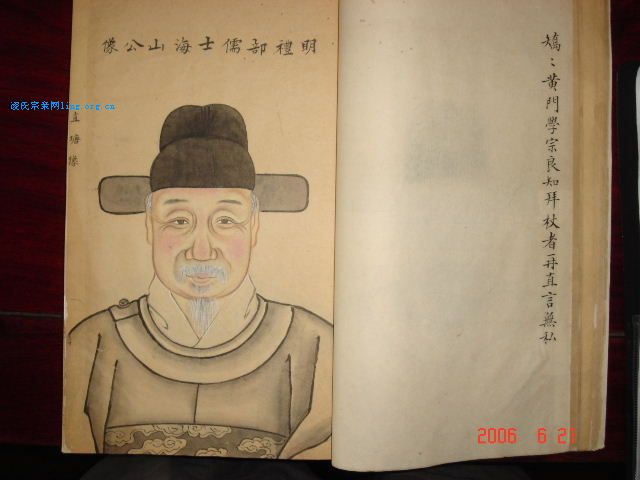 明禮部儒士海山公像
直塘像
矯〻黄門學宗良知拜杖者再直言無私
凌氏宗亲网ling.org.cn
2006 6 21